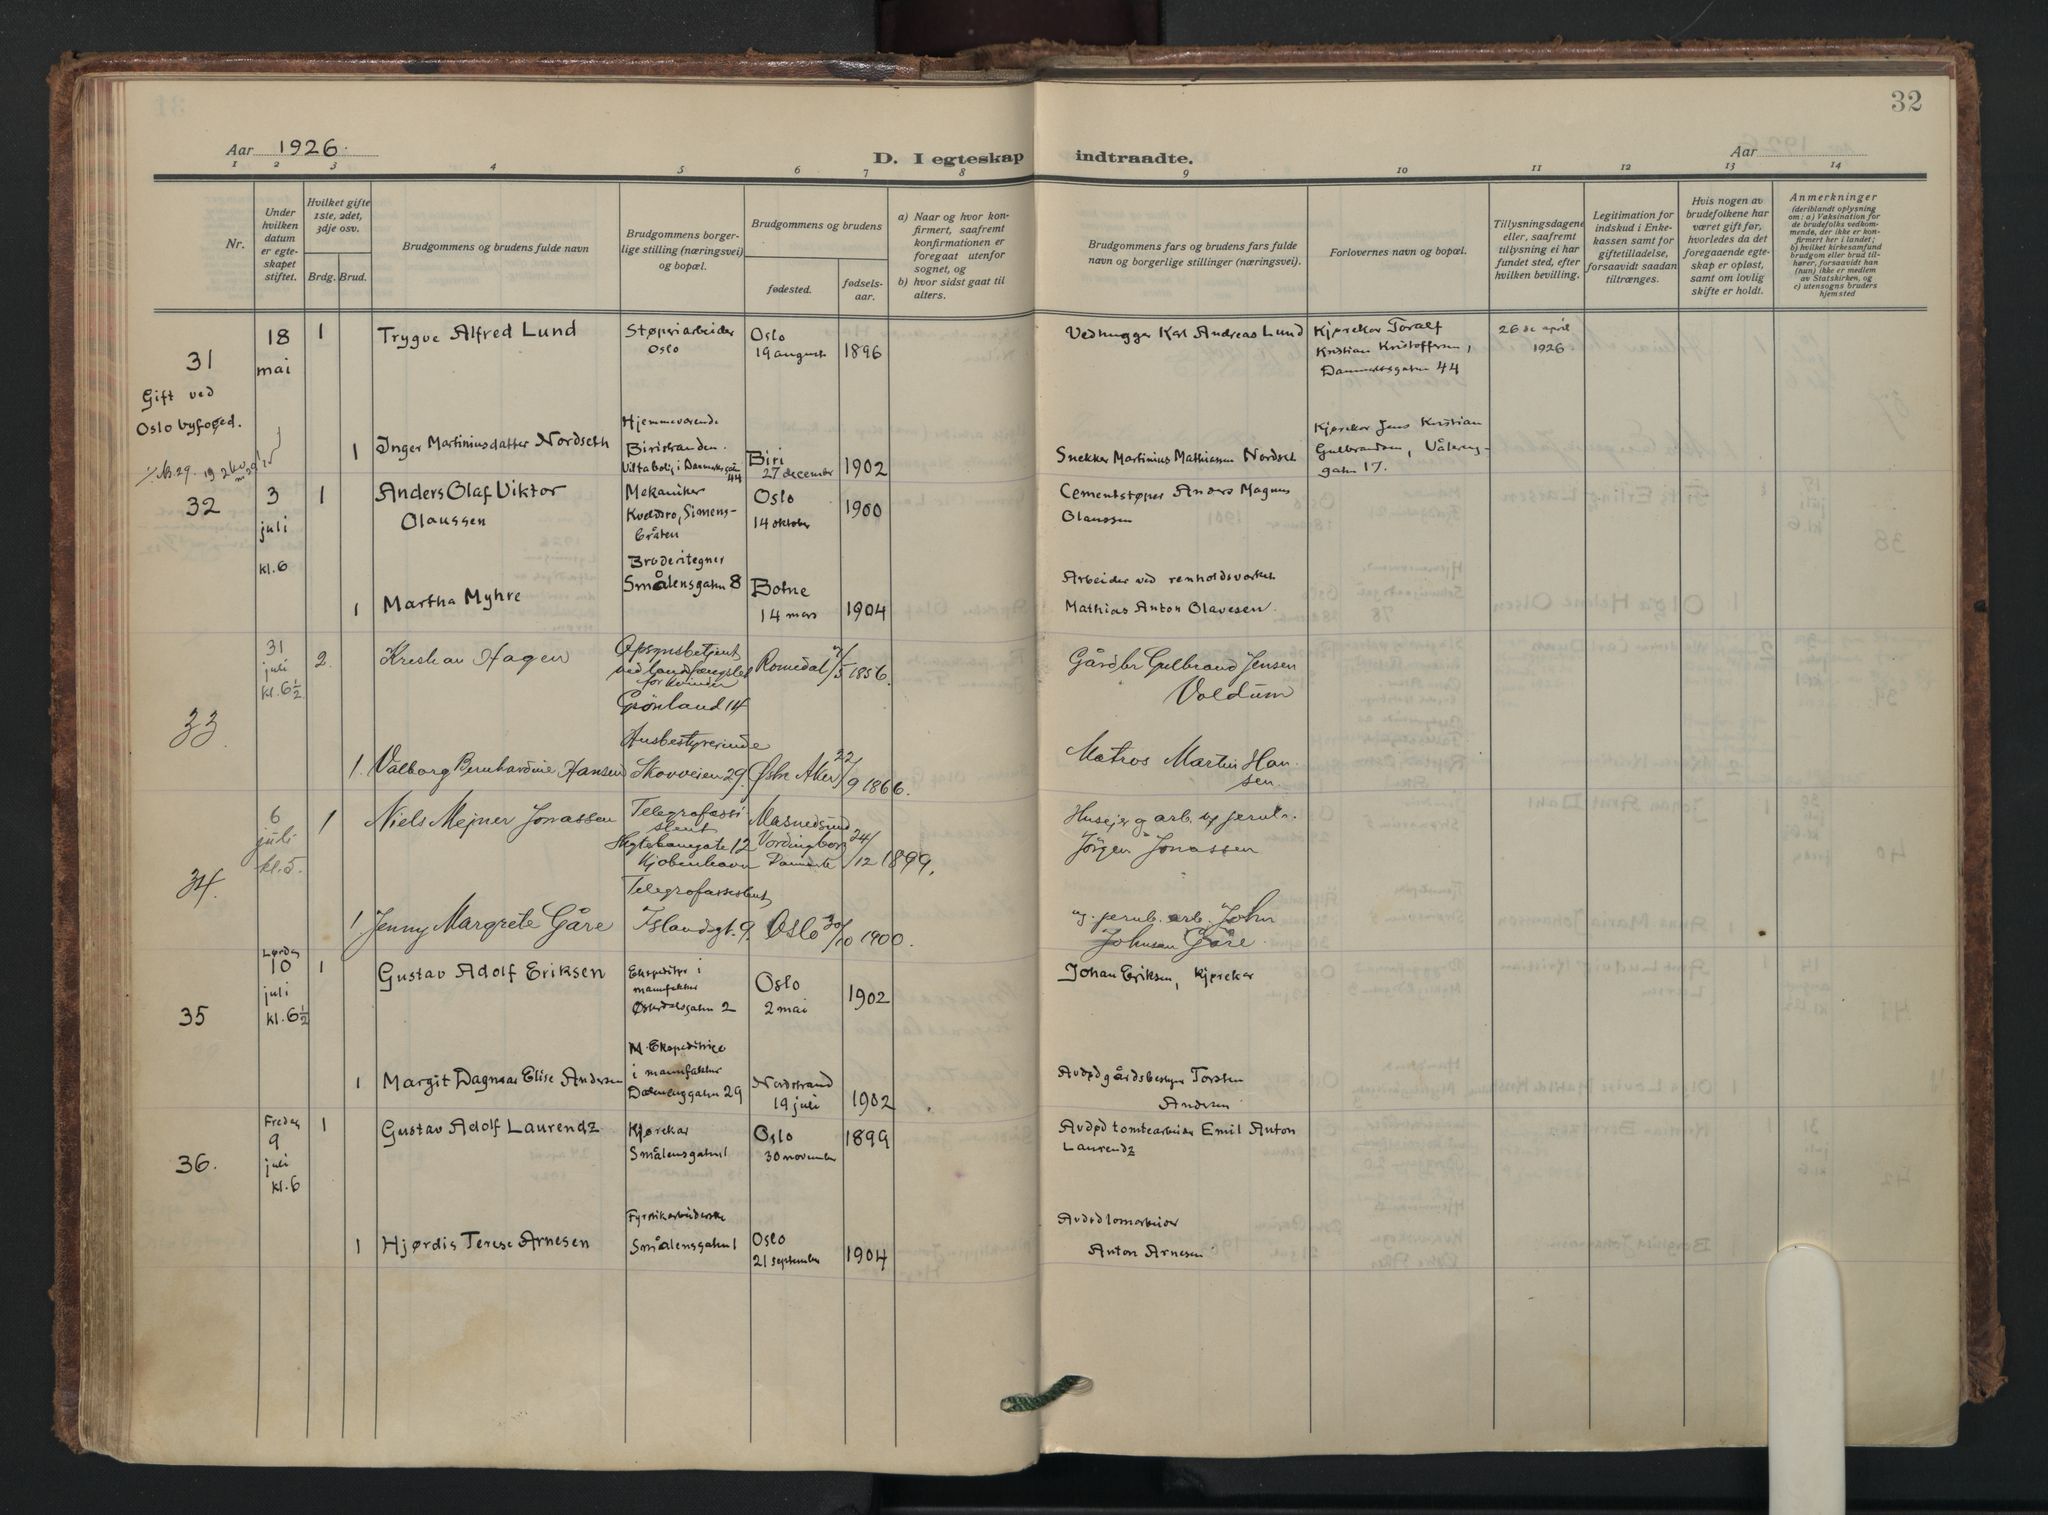 32
Aar 1926.
D. I egteskap indtraadte.
Aar
1 2 3 4 5 6 7 8 9 10 11 12 13 14
Nr.
Under hvilken datum er egteskapet stiftet.
Hvilket gifte 1ste, 2det, 3dje osv.
Brdg. Brud.
Brudgommens og brudens fulde navn
Brudgommens borgerlige stilling (næringsvei) og bopæl.
Brudgommens og brudens
fødested.
fødselsaar.
a) Naar og hvor konfirmert, saafremt konfirmationen er foregaat utenfor sognet, og
b) hvor sidst gaat til alters.
Brudgommens fars og brudens fars fulde navn og borgerlige stillinger (næringsvei).
Forlovernes navn og bopæl.
Tillysningsdagene eller, saafremt tillysning ei har fundet sted, efter hvilken bevilling.
Legitimation for indskud i Enkekassen samt for giftetilladelse, forsaavidt saadan tiltrænges.
Hvis nogen av brudefolkene har været gift før, hvorledes da det foregaaende egteskap er opløst, samt om lovlig skifte er holdt.
Anmerkninger
(deriblandt oplysning om: a) Vaksination for de brudefolks vedkommende, der ikke er konfirmert her i landet; b) hvilket kirkesamfund brudgom eller brud tilhører, forsaavidt han (hun) ikke er medlem av Statskirken, og c) utensogns bruders hjemsted
31
Gift ved
Oslo byfoged.
18
mai
1
Trygve Alfred Lund
Støperiarbeider
Oslo
Oslo
19 august
1896
Vedhugger Karl Andreas Lund
Kjørekar Toralf
Kristian Kristoffersen,
Danmarksgaten 44
26de april
1926
1
Inger Martiniusdatter Nordseth
Hjemmeværende
Biristranden.
Biri
27 december
1902
Snekker Martinius Mathiassen Nordset
Kjørekar Jens Kristian
Gulbrandsen, Våleren-
gatn 17.
32
3
juli
kl. 6
1
Anders Olaf Viktor
Olaussen
Mekaniker
Kveldsro, Simens-
bråten
Oslo
14 oktober
1900
Cementstøper Anders Magnus
Olaussen
1
Martha Myhre
Broderitegner
Smålensgatn 8
Botne
14 mars
1904
Arbeider ved renholdsverket
Mathias Anton Olavesen.
33.
31
juli
kl. 6½
2.
Kristian Hagen
Opsynsbetjent
ved landfængslet
for kvinder
Grönland 14
Romedal
1856.
Gårdbr Gulbrand Jensen
Voldum
1.
Valborg Bernhardine Hansen
Husbestyrerinde
Skovveien 29.
Østre Aker
22/9 1866.
Matros Martin Han-
sen.
34.
6
juli
kl. 5.
1
Niels Mejner Jonassen
Telegrafassi-
stent
12
Kjøbenhavn
Masnedsund
Vordingborg
24/12 1899.
Jörgen Jonassen
1.
Jenny Margrete Gåre
Telegrafassistent
Islandsgt. 9.
Oslo
30/10 1900.
John
Johnsen Gåre.
35
Lørdag
10
juli
kl. 6½
1
Gustav Adolf Eriksen
Ekspeditør i
manufaktur
Østerdalsgatn 2
Oslo
2 mai
1902
Johan Eriksen, kjørekar
1
Margit Dagmar Elise Andersen
Ekspeditrice
i manufaktur
Dælenenggatn 29
Nordstrand
19 juli
1902
Avdød gårdsbestyrer Torsten
Andersen
36.
Fredag
9
juli
kl. 6
1
Gustav Adolf Laurendz
Kjørekar
Smålensgatn 1
Oslo
30 november
1899
Avdød tomtearbeider Emil Anton
Laurendz
1
Hjørdis Terese Arnesen
Fyrstikarbeiderske
Smålensgatn 1
Oslo
21 september
1904
Anton Arnesen